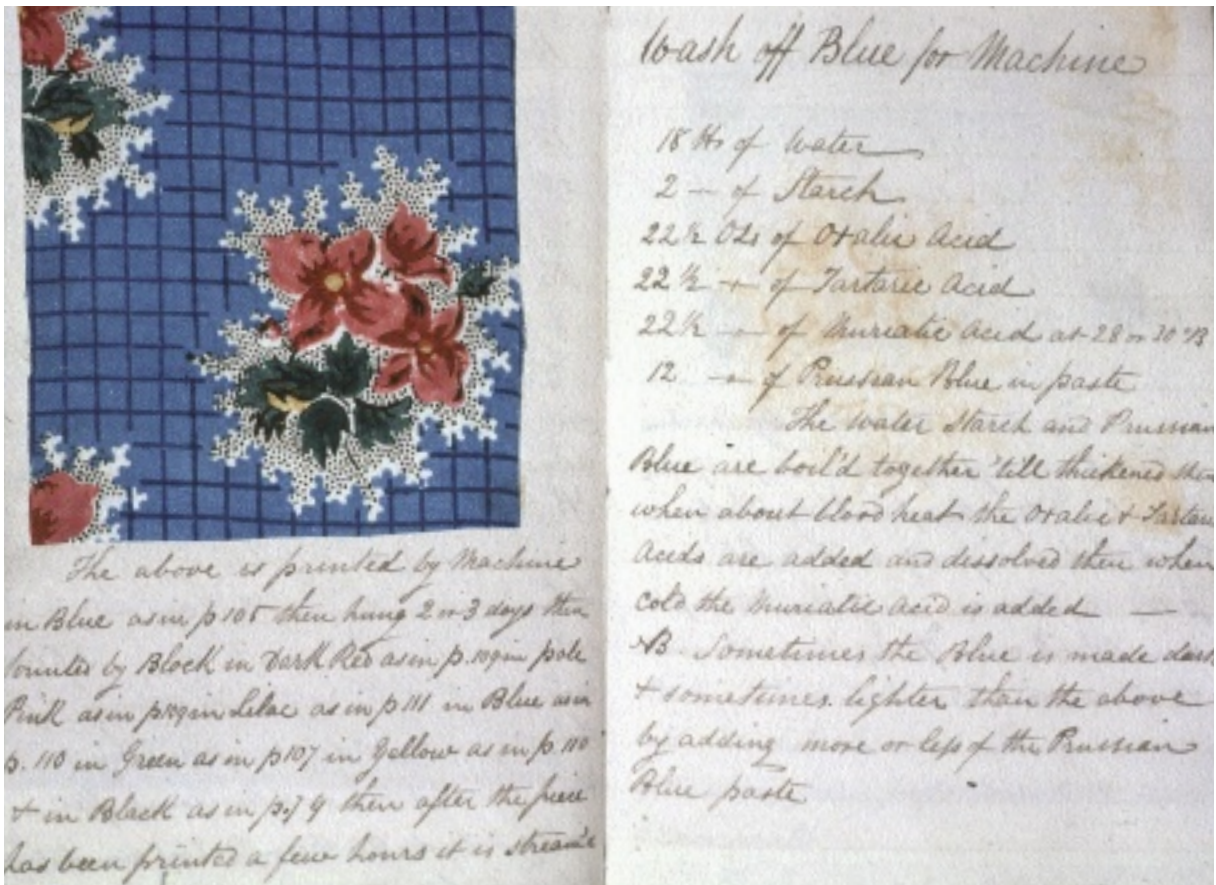 The above is printed by Machine
in Blue as in p 105 then hung 2 or 3 days then
by Block in Dark Red as in p. 109 in pale
Pink as in p 109 in Lilac as in p 111 in Blue as in
p. 110 in Green as in p 107 in Yellow as in p. 110
+ in Black as in p. 79 then after the piece
has been printed a few hours it is stream'd
Wash off Blue for Machine
18 lbs of Water
2 — of Starch
22 ½ Ozs of Oxalic Acid
22 ½ — of Tartaric Acid
22 ½ — of Muriatic Acid at 28 or 30 °B
12 — of Prussian Blue in paste
The Water Starch and Prussian
Blue are boil'd together 'till thickened then
when about blood heat the Oxalic + Tartaric
Acids are added and dissolved then when
cold the Muriatic Acid is added —
NB Sometimes the Blue is made dark
+ sometimes lighter than the above
by adding more or less of the Prussian
Blue paste